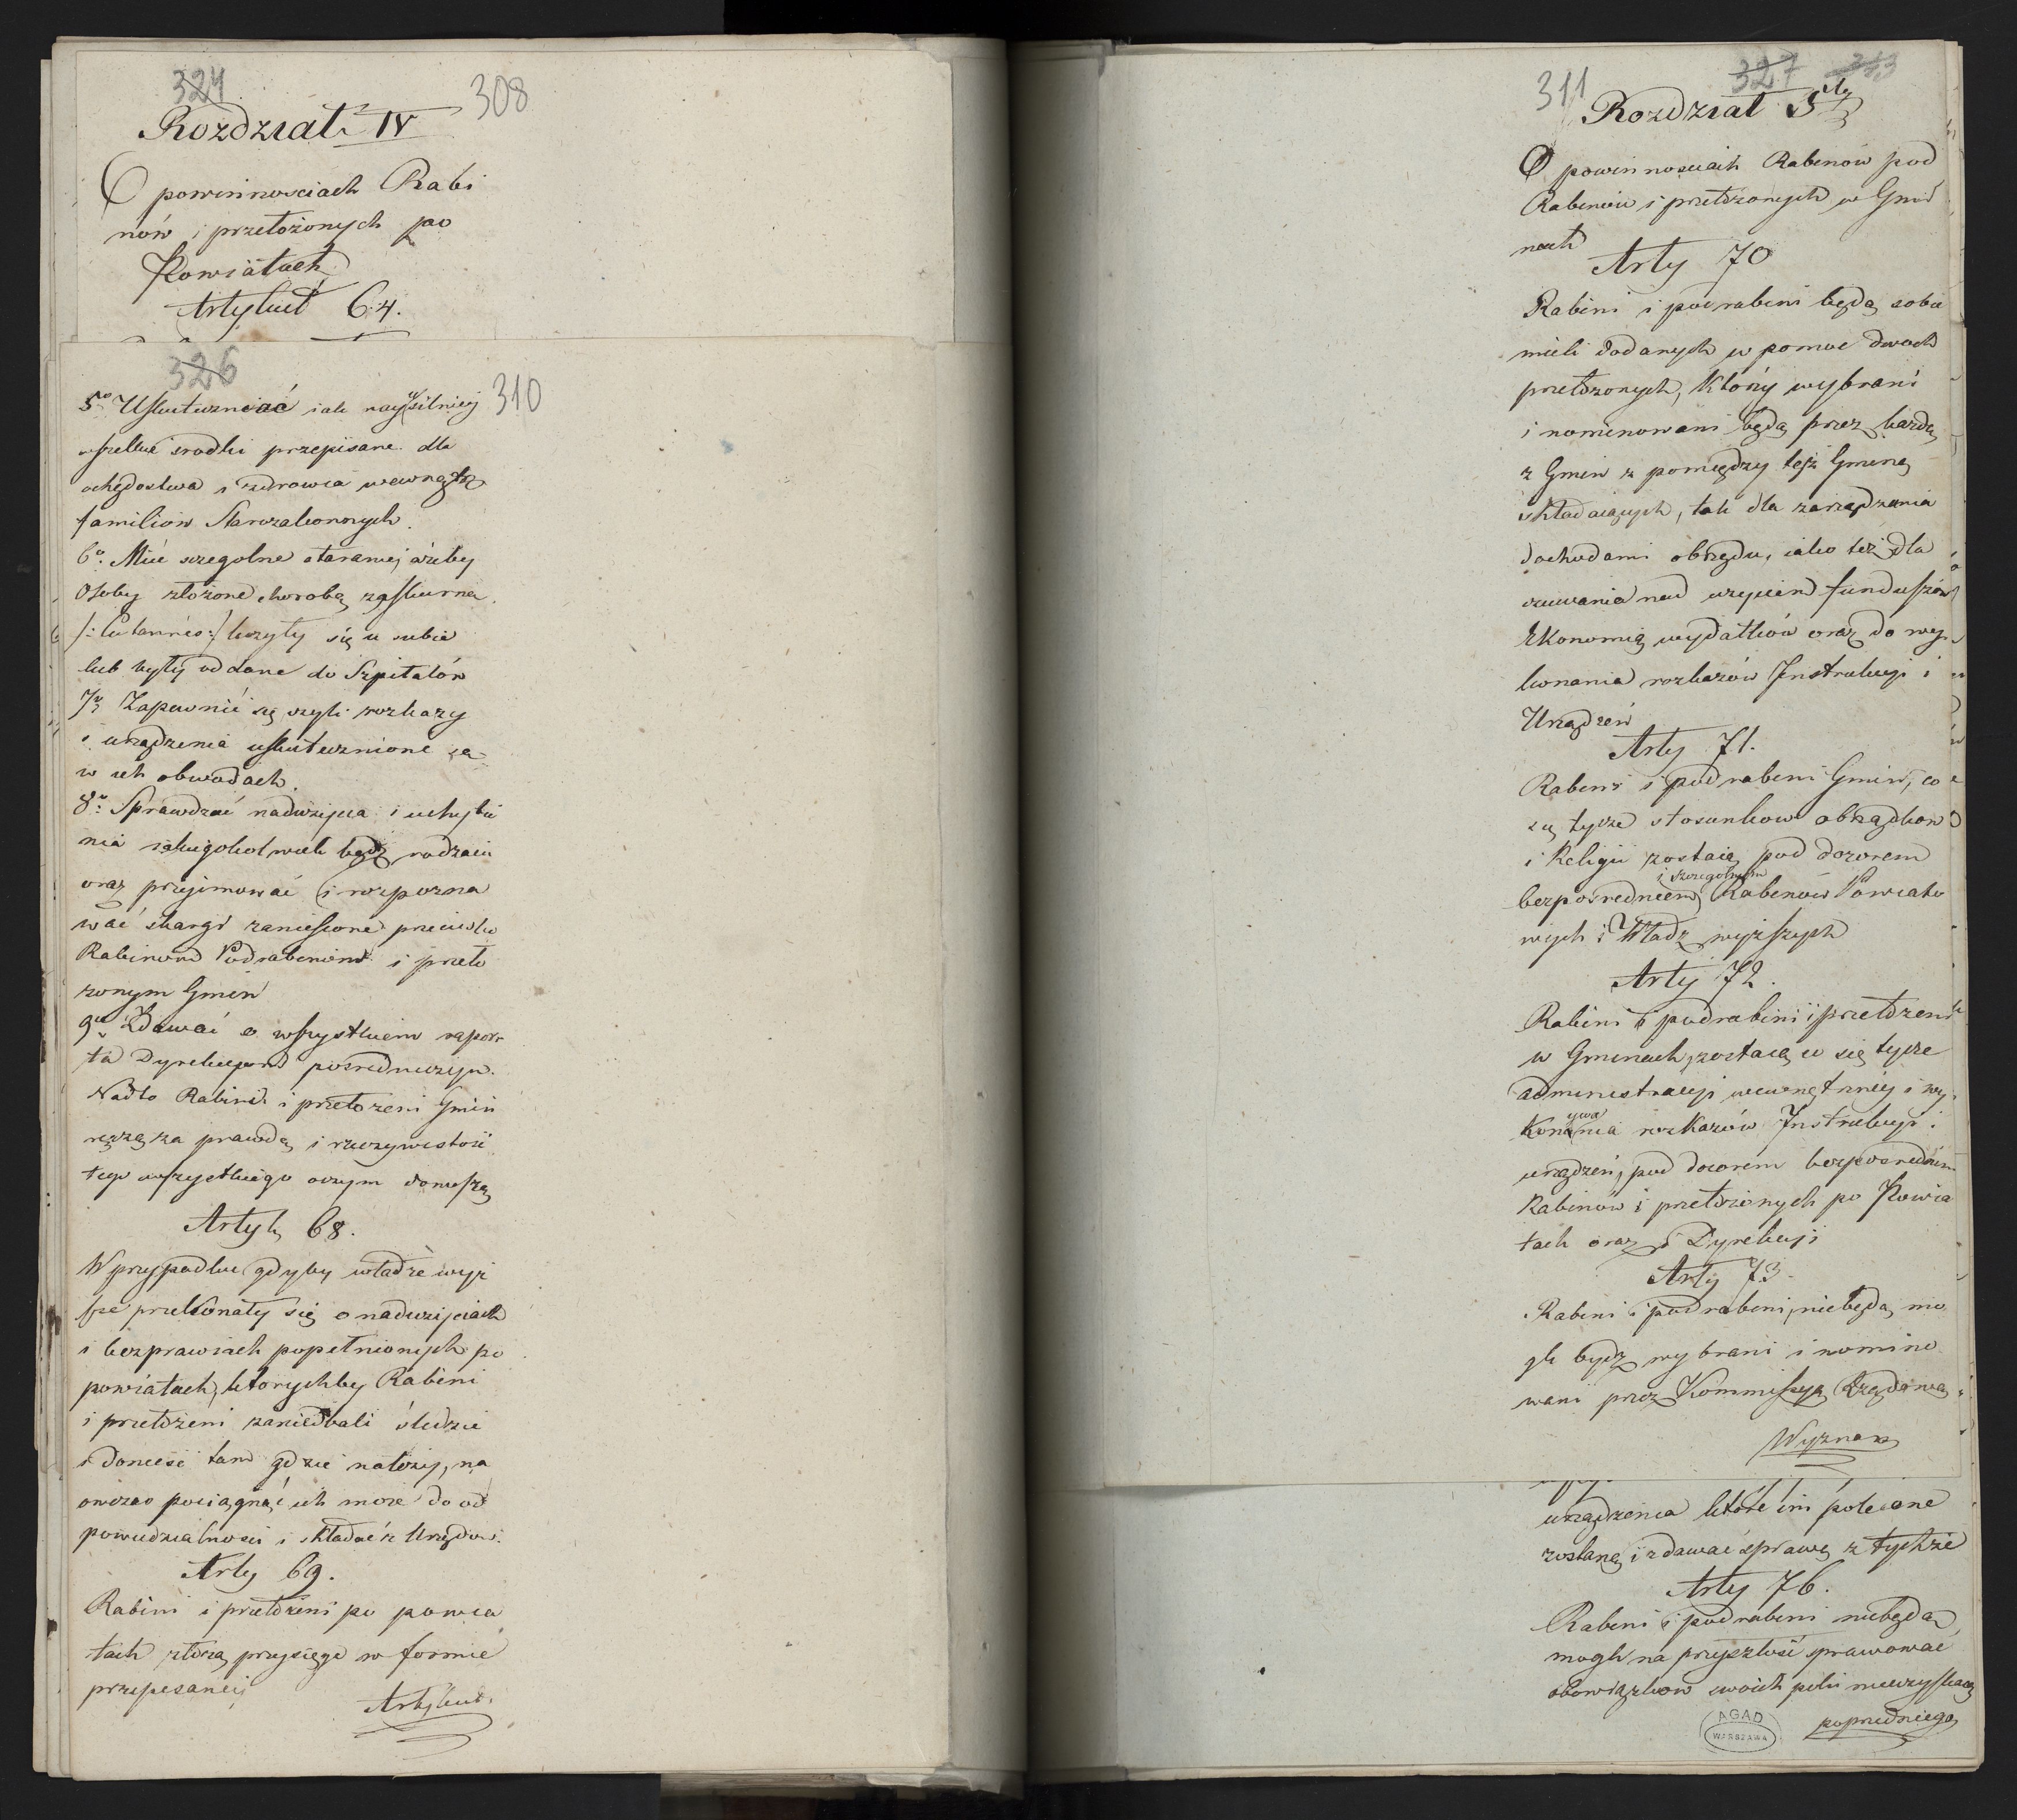 324
308
Rozdział IV
O powinnosciach Rabi
nów i przełożonych po
Powiatach
Artykuł 64.
326
310
5° Uskuteczniać iak naysilniey
wszelkie srodki przepisane dla
ochędostwa i zdrowia wewnątrz
familiów Starozakonnych.
6° Mieć szegolne staranie, ażeby
Osoby złożone chorobą zaskurną
/: :/ leczyły się u siebie
lub były oddane do Szpitalów
7° Zapewnić się czyli rozkazy
i urządzenia uskutecznione są
w ich obwodach.
8° Sprawdzać nadużycia i uchybie
nia iakiegokolwiek bądz rodzaiu
oraz przyimować i rozpozna
wać skargi zaniesione przeciwko
Rabinom Podrabinom i przeło
żonym Gmin
9° Zdawać o wszystkiem rapor
ta Dyrekcyom posredniczym.
Nadto Rabini i przełożeni Gmin
ręczą za prawdę i rzeczywistość
tego wszystkiego oczym donoszą
Artyk 68.
W przypadku gdyby władze wyż
sze przekonały się o nadużyciach
i bezprawiach popełnionych po
powiatach, którychby Rabini
i przełożeni zaniedbali śledzić
i donieść tam gdzie należy, na
owczas pociągnąć ich może do od
powiedzialnosci i składać z Urzędow.
Arty 69.
Rabini i przełożeni po powia
tach złożą przysięgę w formie
przepisaney
Artykuł
311
327
313
Rozdział 5ty
O powinnosciach Rabinów pod
Rabinów i przełożonych w Gmi
nach
Arty 70
Rabini i podrabini będą sobie
mieli dodanych w pomoc dwoch
przełożonych, którzy wybrani
i nominowani będą przez każdą
z Gmin z pomiędzy tęż Gminę
składaiących, tak dla zarządzania
dochodami obrzędu, iako też dla
czuwania nad użyciem funduszów
Ekonomią wydatków oraz do wy
konania rozkazów Instrukcyi i
Urządzeń
Arty 71.
Rabini i podrabini Gmin, co
się tycze stosunkow obrządkow
i Religii zostaią pod dozorem
i szczegolnym
bezpośredniem Rabinów Powiato
wych i Władz wyższych
Arty 72.
Rabini i podrabini i przełożeni
w Gminach, zostaią co się tycze
administracyi wewnętrzney i wy
ywa
konania rozkazów Instrukcyi i
urządzeń, pod dozorem bezposrednim
Rabinów i przełożonych po Powia
tach oraz i Dyrekcyi
Arty 73.
Rabini i podrabini, niebędą mo
gli bydz wybrani i nomino
wani przez Kommissyą Rządową
Wyznań
urządzenia które im polecane
zostaną i zdawać sprawę z tychże
Arty 76.
Rabini i podrabini niebędą
mogli na przyszłość sprawować
obowiązkow swoich poki nieuzyskaią
poprzedniego
AGAD
WARSZAWA